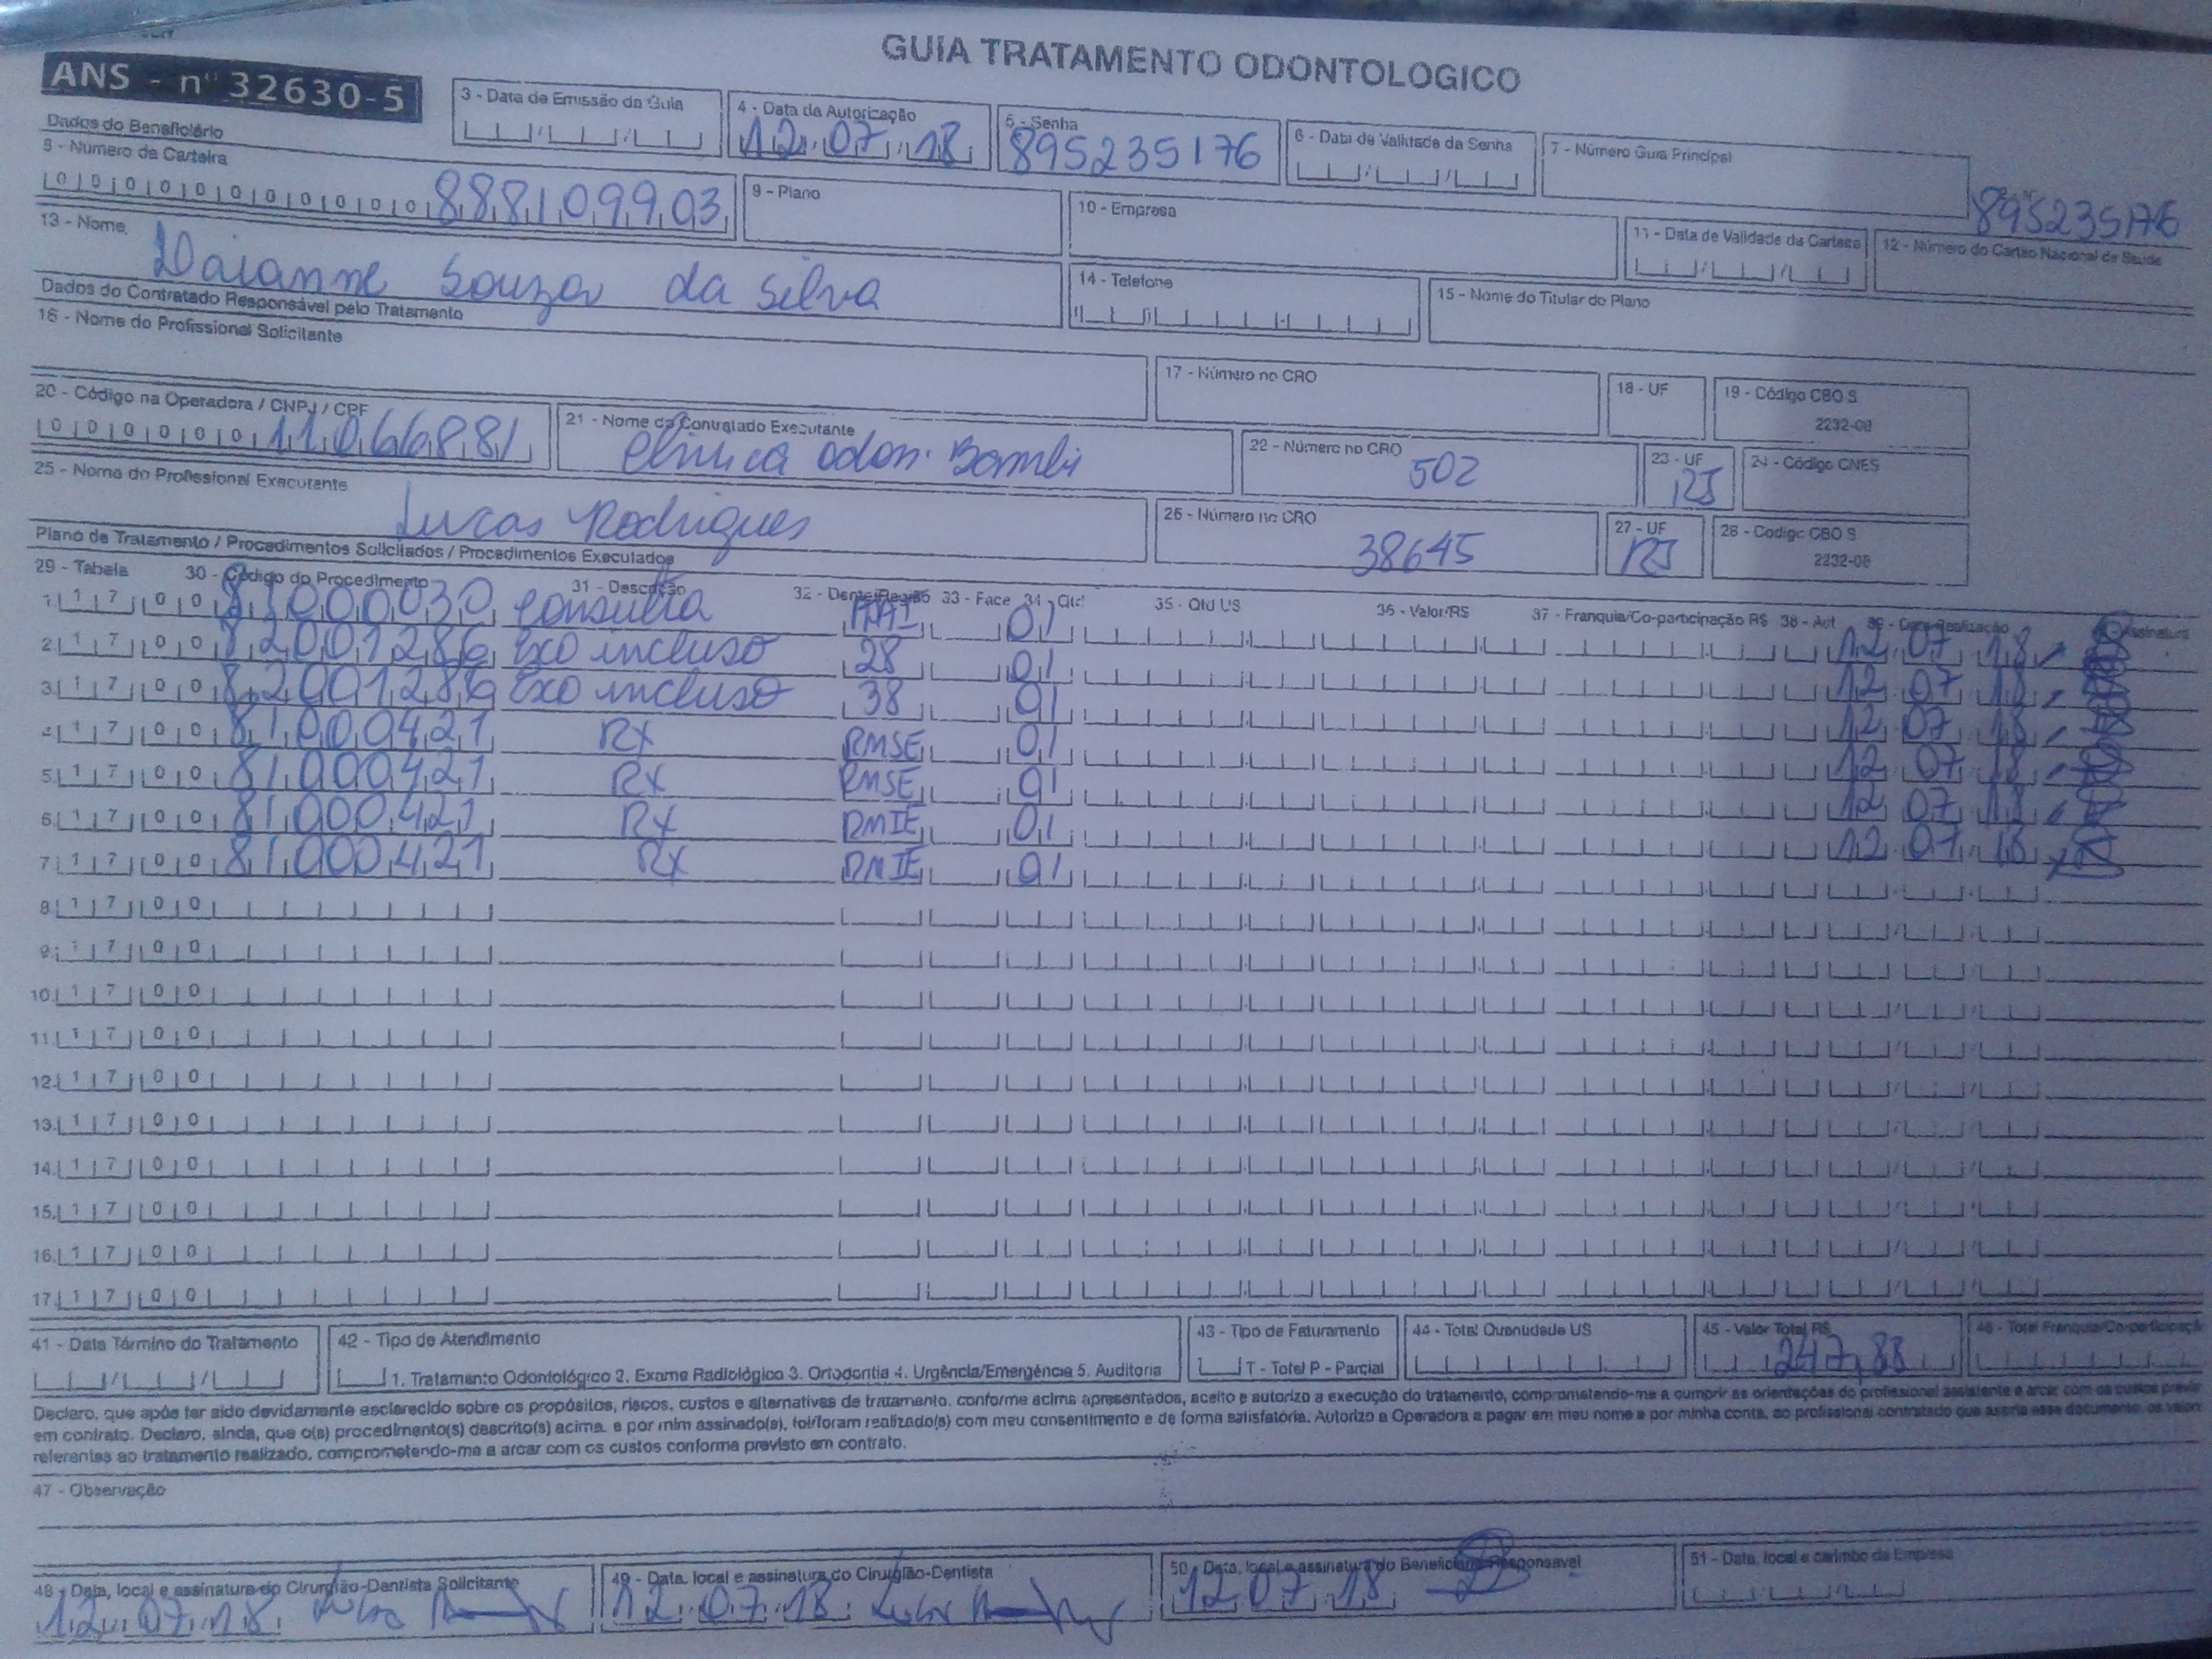 GUIA TRATAMENTO ODONTOLOGICO
ANS - nº 32630-5
3 - Data de Emissão da Guia
4 - Data da Autorização
12 07 18
5 - Senha
895235176
6 - Data de Validade da Senha
7 - Número Guia Principal
895235176
Dados do Beneficiário
8 - Número da Carteira
9 - Plano
10 - Empresa
11 - Data de Validade da Carteira
12 - Número do Cartão Nacional de Saúde
13 - Nome
Daianne Souza da Silva
14 - Telefone
15 - Nome do Titular do Plano
Dados do Contratado Responsável pelo Tratamento
16 - Nome do Profissional Solicitante
17 - Número no CRO
18 - UF
19 - Código CBO S
2232-08
20 - Código na Operadora / CNPJ / CPF
21 - Nome do Contratado Executante
Clinica odon. Bombi
22 - Número no CRO
502
23 - UF
RJ
24 - Código CNES
25 - Nome do Profissional Executante
Lucas Rodrigues
26 - Número no CRO
38645
27 - UF
RJ
28 - Codigo CBO S
2232-08
Plano de Tratamento / Procedimentos Solicitados / Procedimentos Executados
29 - Tabela 30 - Código do Procedimento 31 - Descrição 32 - Dente/Região 33 - Face 34 - Qtd 35 - Qtd US 36 - Valor/R$ 37 - Franquia/Co-participação R$ 38 - Aut
1. 1 7 0 0 81000030 consulta 01 12 07 18
2. 1 7 0 0 82001286 Exo incluso 28 01 12 07 18
3. 1 7 0 0 82001286 Exo incluso 38 01 12 07 18
4. 1 7 0 0 81000421 RX RMSE 01 12 07 18
5. 1 7 0 0 81000421 RX RMSE 01 12 07 18
6. 1 7 0 0 81000421 RX RMIE 01 12 07 18
7. 1 7 0 0 81000421 RX RMIE 01
8. 1 7 0 0
9. 1 7 0 0
10. 1 7 0 0
11. 1 7 0 0
12. 1 7 0 0
13. 1 7 0 0
14. 1 7 0 0
15. 1 7 0 0
16. 1 7 0 0
17. 1 7 0 0
41 - Data Término do Tratamento
42 - Tipo de Atendimento
1. Tratamento Odontológico 2. Exame Radiológico 3. Ortodontia 4. Urgência/Emergência 5. Auditoria
43 - Tipo de Faturamento
T - Total P - Parcial
44 - Total Quantidade US
45 - Valor Total R$
247,88
46 - Total Franquia/Co-participação
Declaro, que após ter sido devidamente esclarecido sobre os propósitos, riscos, custos e alternativas de tratamento, conforme acima apresentados, aceito e autorizo a execução do tratamento, comprometendo-me a cumprir as orientações do profissional assistente e arcar com os custos previstos
em contrato. Declaro, ainda, que o(s) procedimento(s) descrito(s) acima, e por mim assinado(s), foi/foram realizado(s) com meu consentimento e de forma satisfatória. Autorizo a Operadora a pagar em meu nome e por minha conta, ao profissional contratado que assina esse documento, os valores
referentes ao tratamento realizado, comprometendo-me a arcar com os custos conforme previsto em contrato.
47 - Observação
48 - Data, local e assinatura do Cirurgião-Dentista Solicitante
12 07 18
49 - Data, local e assinatura do Cirurgião-Dentista
12 07 18
50 - Data, local e assinatura do Beneficiário/Responsável
12 07 18
51 - Data, local e carimbo da Empresa